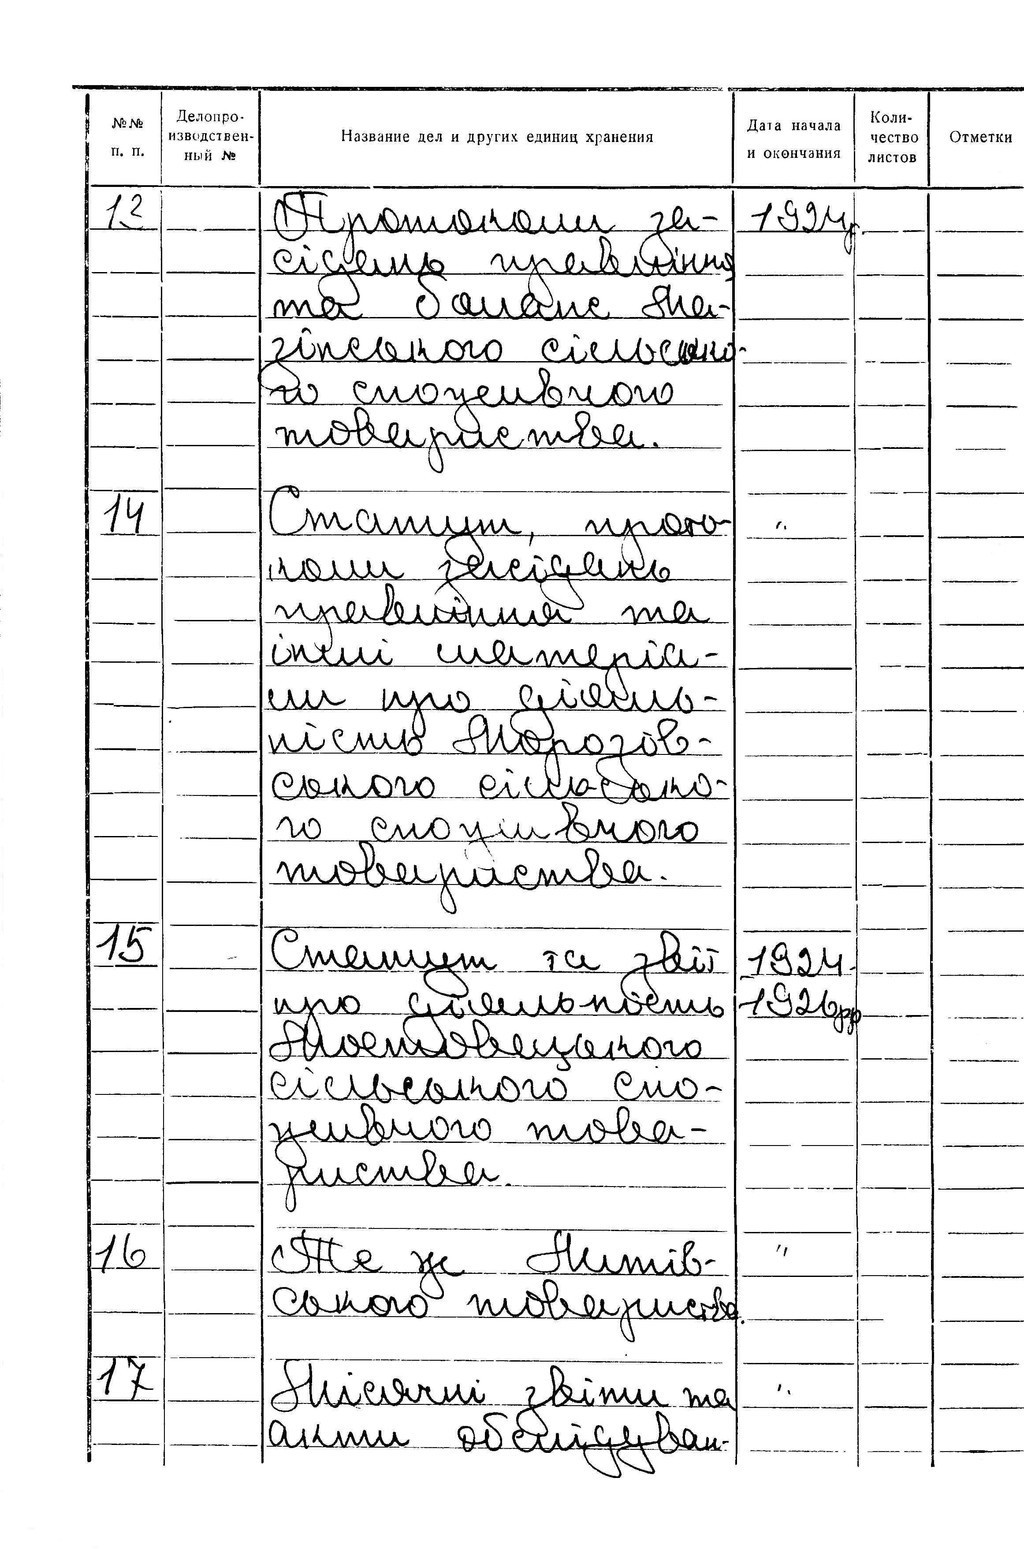 №№ п. п.
Делопро-
изводствен-
ный №
Название дел и других единиц хранения
Дата начала
и окончания
Коли-
чество
листов
Отметки
13 Протоколи за- 1924р.
сідань правління
та баланс Ма-
зінського сільсько-
го споживчого
товариства.
14 Статут, прото- "
коли засідань
правління та
інші матеріа-
ли про діяль-
ність Морозів-
ського сільсько-
го споживчого
товариства.
15 Статут та звіт 1924-
про діяльність 1926рр
Мостовецького
сільського спо-
живчого това-
риства.
16 Те ж Митів- "
ського товариства.
17 Місячні звіти та "
акти обслідуван-